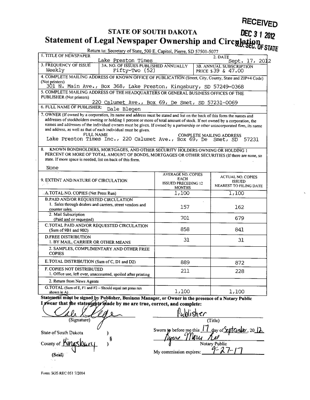 RECEIVED
DEC 3 1 2012
SEC. OF STATE
STATE OF SOUTH DAKOTA
Statement of Legal Newspaper Ownership and Circulation
Return to: Secretary of State, 500 E. Capitol, Pierre, SD 57501-5077
1. TITLE OF NEWSPAPER
Lake Preston Times
2. DATE
Sept. 17, 2012
3. FREQUENCY OF ISSUE
Weekly
3A. NO. OF ISSUES PUBLISHED ANNUALLY
Fifty-Two (52)
3B. ANNUAL SUBSCRIPTION
PRICE $39 & 47.00
4. COMPLETE MAILING ADDRESS OF KNOWN OFFICE OF PUBLICATION (Street, City, County, State and ZIP+4 Code)
(Not printers)
301 N. Main Ave., Box 368. Lake Preston. Kingsbury, SD 57249-0368
5. COMPLETE MAILING ADDRESS OF THE HEADQUARTERS OR GENERAL BUSINESS OFFICES OF THE
PUBLISHER (Not printers)
220 Calumet Ave., Box 69, De Smet, SD 57231-0069
6. FULL NAME OF PUBLISHER:
Dale Blegen
7. OWNER (If owned by a corporation, its name and address must be stated and
FULL NAME
COMPLETE MAILING ADDRESS
Lake Preston Times Inc., 220 Calumet Ave., Box 69, De Smet, SD 57231
8. KNOWN BONDHOLDERS, MORTGAGEES, AND OTHER SECURITY HOLDERS OWNING OR HOLDING 1
PERCENT OR MORE OF TOTAL AMOUNT OF BONDS, MORTGAGES OR OTHER SECURITIES (If there are none, so
state. If more space is needed, list on back of this form.
None
9. EXTENT AND NATURE OF CIRCULATION
AVERAGE NO. COPIES
EACH
ISSUED PRECEDING 12
MONTHS
ACTUAL NO. COPIES
ISSUED
NEAREST TO FILING DATE
A. TOTAL NO. COPIES (Net Press Run)
1,100
1,100
B. PAID AND/OR REQUESTED CIRCULATION
1. Sales through dealers and carriers, street vendors and
counter sales.
157
162
2. Mail Subscription
(Paid and or requested)
701
679
C. TOTAL PAID AND/OR REQUESTED CIRCULATION
(Sum of 9B1 and 9B2)
858
841
D. FREE DISTRIBUTION
1. BY MAIL, CARRIER OR OTHER MEANS
31
31
2. SAMPLES, COMPLIMENTARY AND OTHER FREE
COPIES
E. TOTAL DISTRIBUTION (Sum of C, D1 and D2)
889
872
F. COPIES NOT DISTRIBUTED
1. Office use, left over, unaccounted, spoiled after printing
211
228
2. Return from News Agents
G. TOTAL (Sum of E, F1 and F2 - Should equal net press run
shown in A)
1,100
1,100
Statement must be signed by Publisher, Business Manager, or Owner in the presence of a Notary Public
I swear that the statements made by me are true, correct, and complete:
Publisher
(Signature)
(Title)
State of South Dakota
Sworn to before me this 17 day of September, 2012
County of Kingsbury
Notary Public
(Seal)
My commission expires: 9-27-17